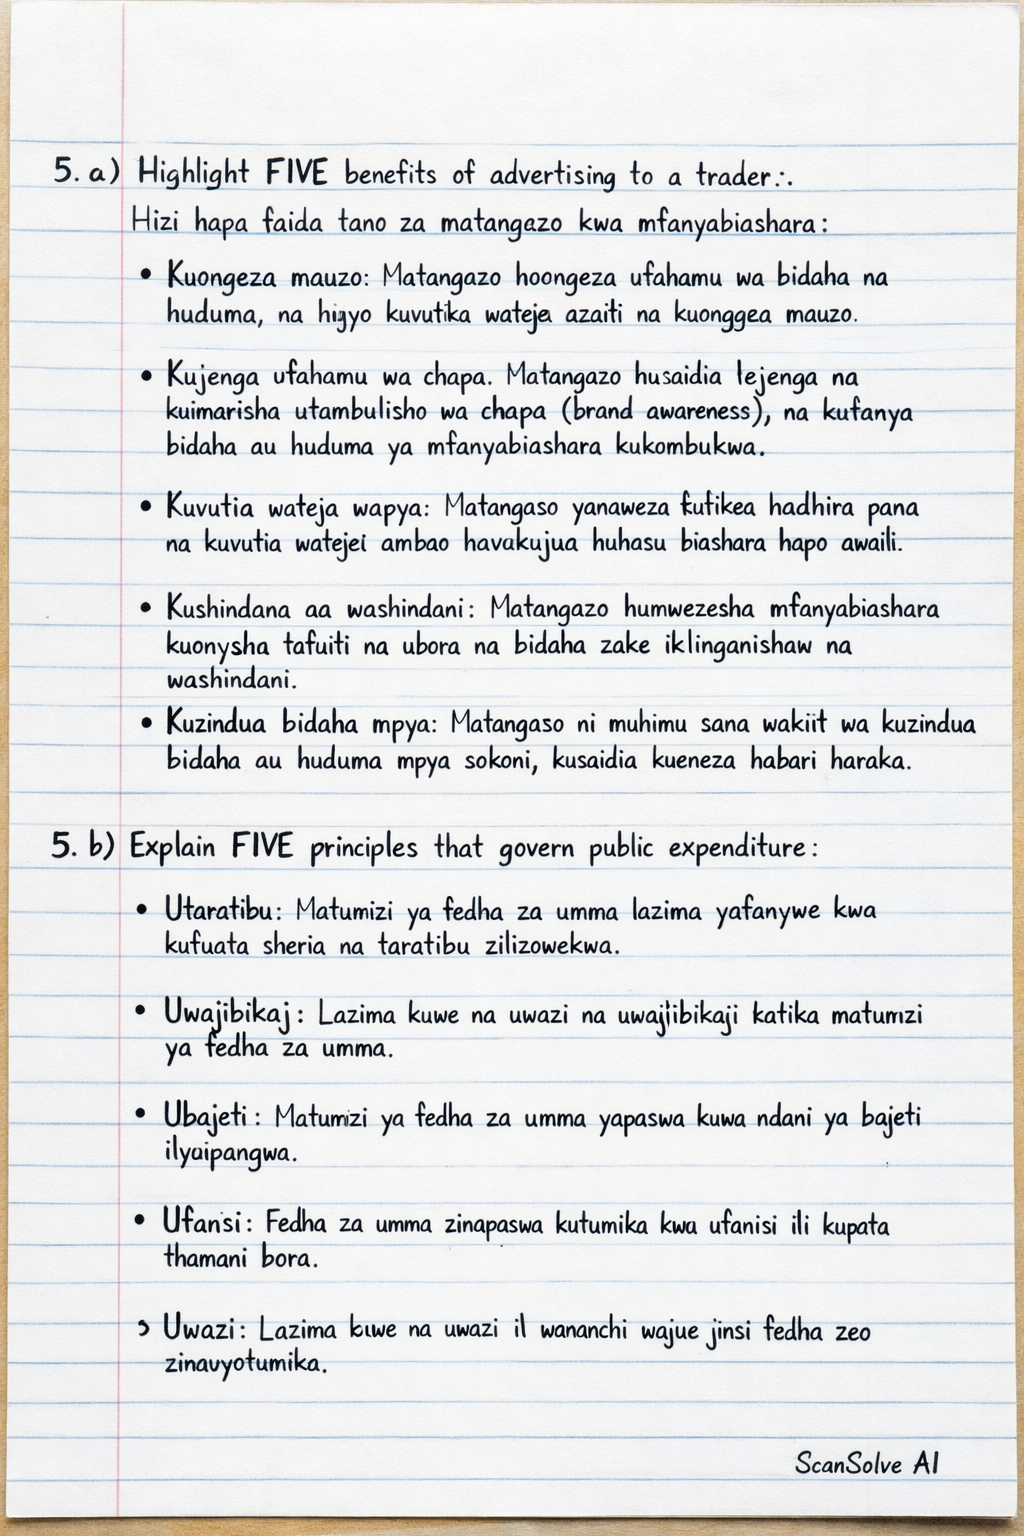 5. a) Highlight FIVE benefits of advertising to a trader:.
Hizi hapa faida tano za matangazo kwa mfanyabiashara:
• Kuongeza mauzo: Matangazo hoongeza ufahamu wa bidaha na
huduma, na higyo kuvutika wateja azaiti na kuonggea mauzo.
• Kujenga ufahamu wa chapa. Matangazo husaidia lejenga na
kuimarisha utambulisho wa chapa (brand awareness), na kufanya
bidaha au huduma ya mfanyabiashara kukombukwa.
• Kuvutia wateja wapya: Matangaso yanaweza kufikea hadhira pana
na kuvutia watejei ambao havakujua huhasu biashara hapo awaili.
• Kushindana aa washindani: Matangazo humwezesha mfanyabiashara
kuonysha tafuiti na ubora na bidaha zake iklinganishaw na
washindani.
• Kuzindua bidaha mpya: Matangaso ni muhimu sana wakiit wa kuzindua
bidaha au huduma mpya sokoni, kusaidia kueneza habari haraka.
5. b) Explain FIVE principles that govern public expenditure:
• Utaratibu: Matumizi ya fedha za umma lazima yafanywe kwa
kufuata sheria na taratibu zilizowekwa.
• Uwajibikaj: Lazima kuwe na uwazi na uwajlibikaji katika matumzi
ya fedha za umma.
• Ubajeti: Matumizi ya fedha za umma yapaswa kuwa ndani ya bajeti
ilyaipangwa.
• Ufansi: Fedha za umma zinapaswa kutumika kwa ufanisi ili kupata
thamani bora.
• Uwazi: Lazima kuwe na uwazi il wananchi wajue jinsi fedha zeo
zinavyotumika.
ScanSolve AI